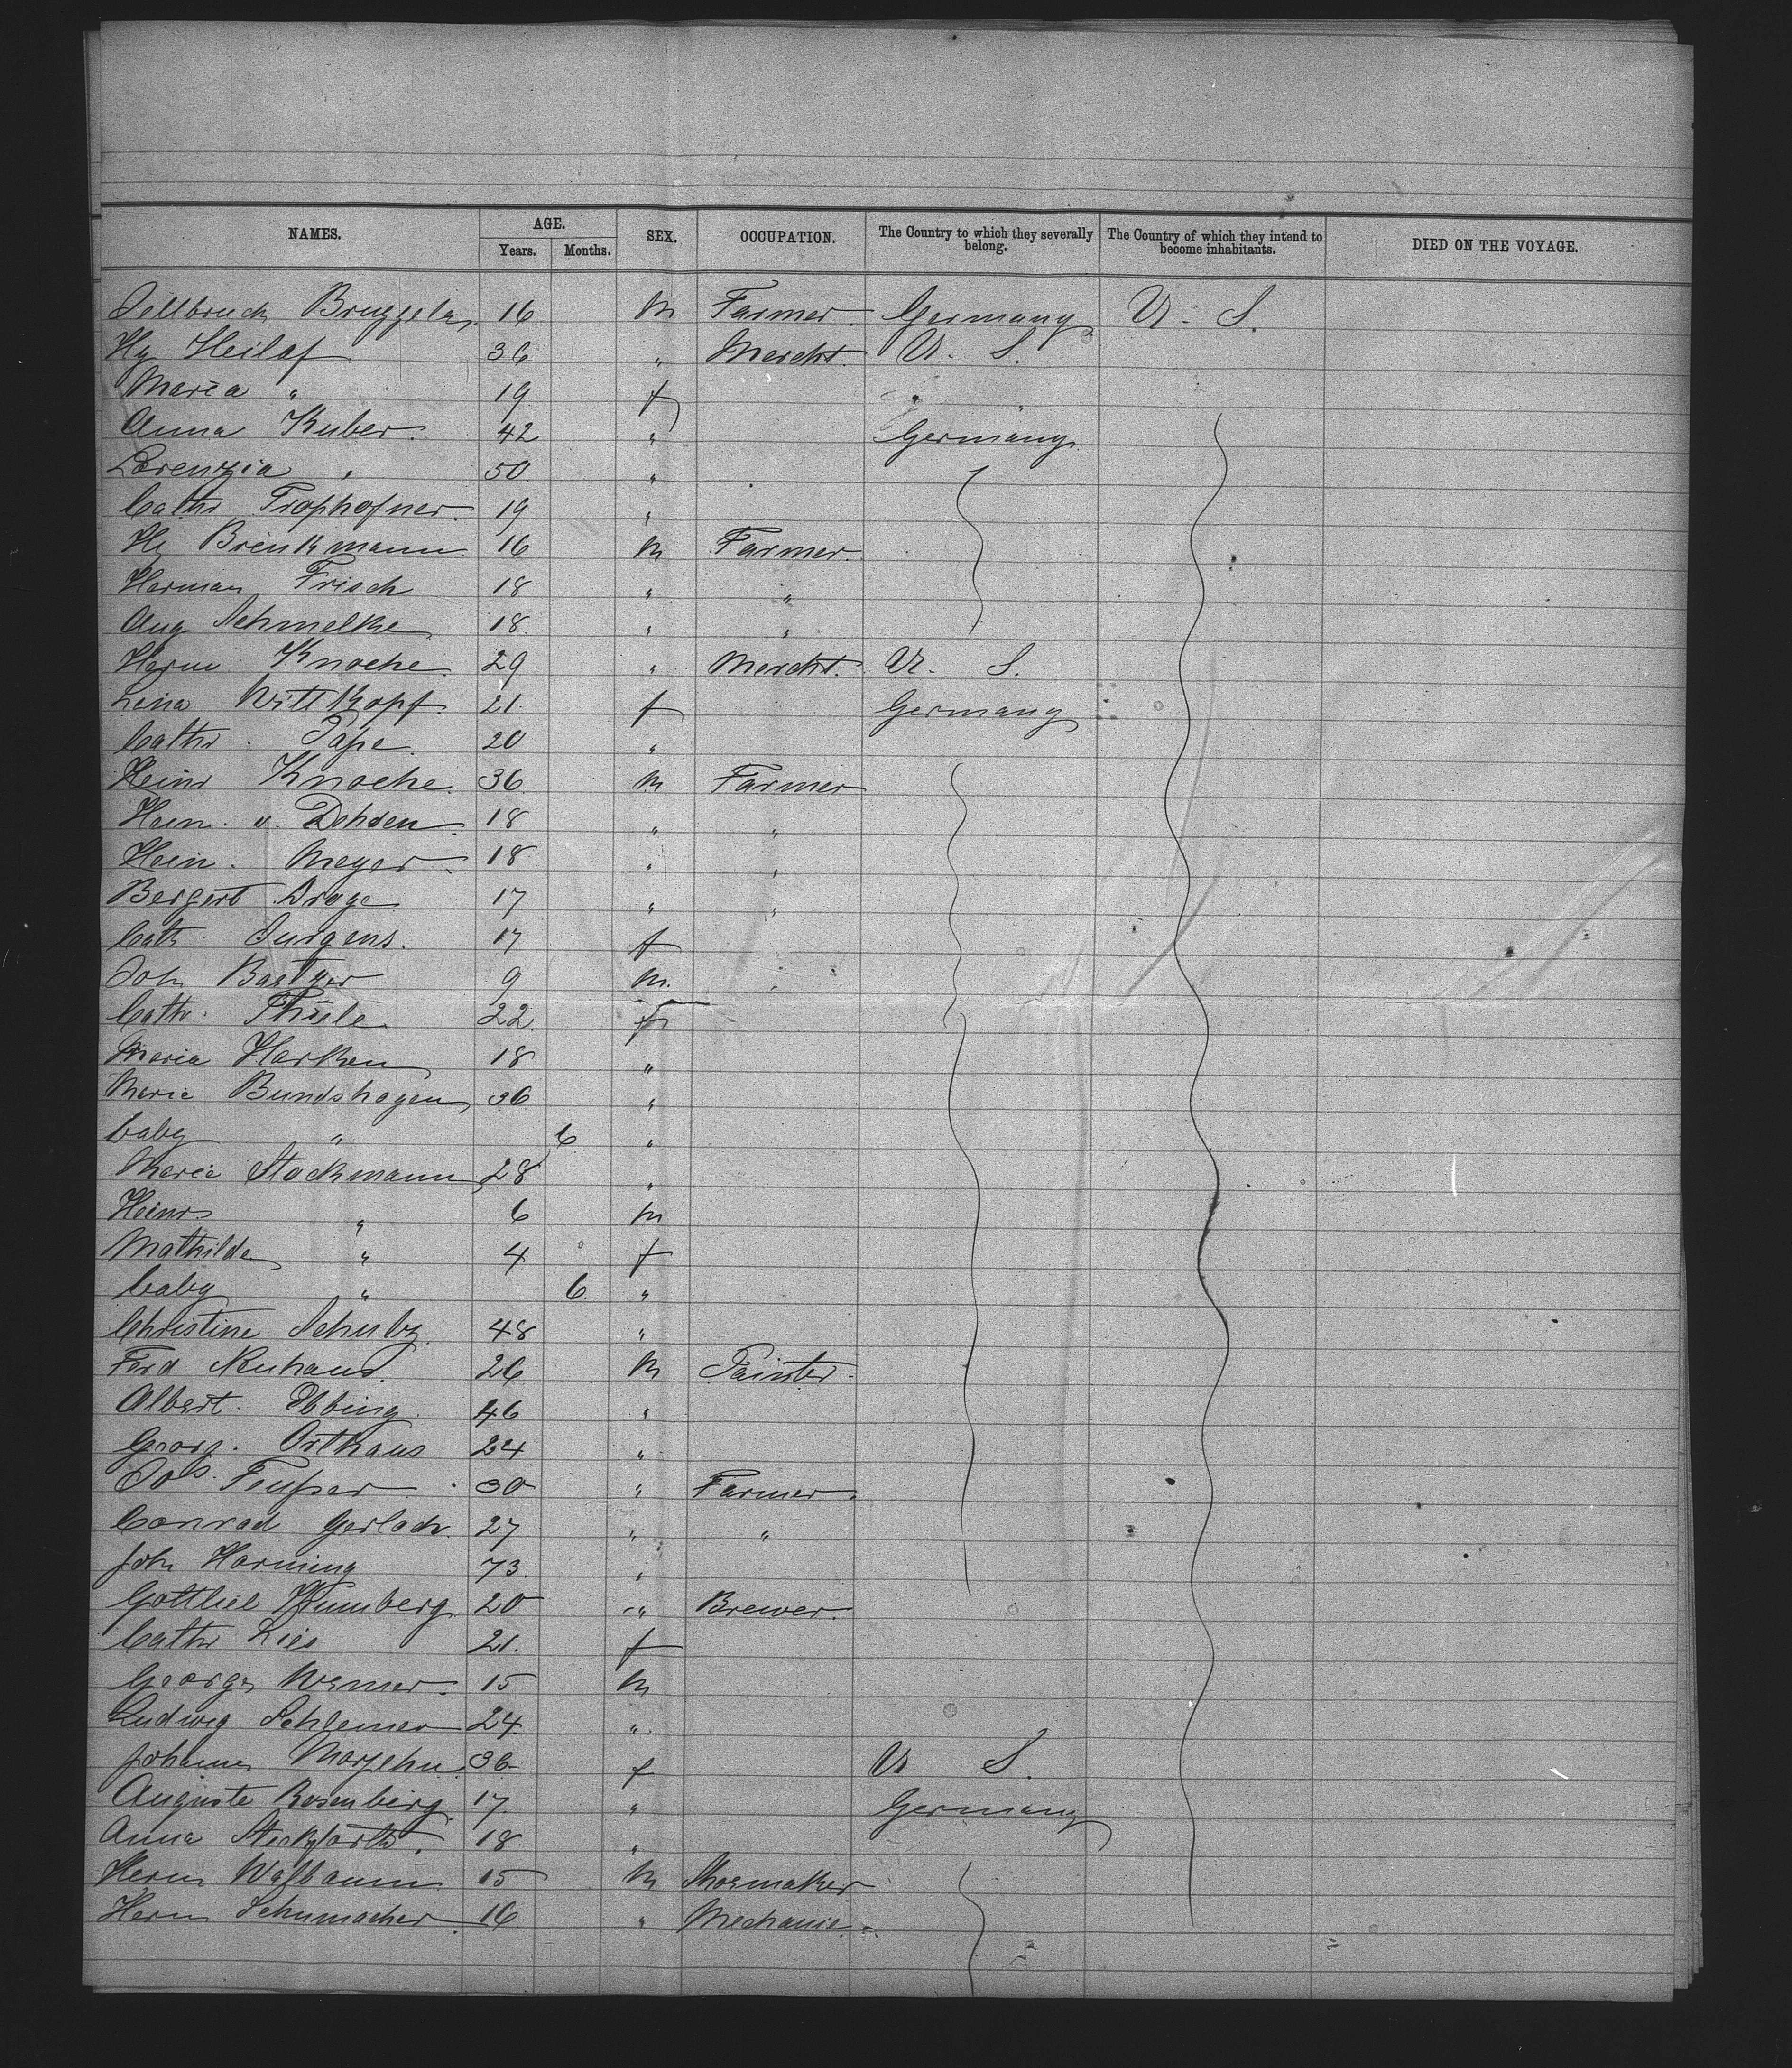 NAMES. AGE. Years. Months. SEX. OCCUPATION. The Country to which they severally belong. The Country of which they intend to become inhabitants. DIED ON THE VOYAGE.
16 m Farmer. Germany U. S.
Hy Heilof 36 " Mercht. U. S.
Maria " 19 f
Anna Kuber. 42 " Germany
Lorenzia " 50 "
Cathr Trophofner. 19 "
Hy Brinkmann 16 m Farmer.
Herman Frisch 18 " "
Aug Schmelke 18. " "
Herm Knoche. 29 " Mercht. U. S.
Lina Wittkopf. 21. f Germany
Cathr. Pape. 20 "
Heinr Knoche. 36 m Farmer
Hein. v. Dehsen. 18 " "
Hein. Meyer. 18 " "
Bergert Droge 17 " "
Cath Jurgens. 17 f
Joh Baetzer 9 m.
Cathr. Thiele. 22. f
Maria Harken 18 "
Marie Bundshagen 36 "
baby " 6 "
Marie Stockmann 28 "
Heinr " 6 m
Mathilde " 4 f
baby " 6. "
Christine Schulz 48 "
Ferd Neuhaus. 26 m Painter.
Albert. Ebbing 46 "
Georg. Orthaus 24 "
Jos. 30 " Farmer.
Conrad Gerlach. 27 " "
Joh Horning 73. "
Gottlieb 20 " Brewer.
Cathr Lies 21. f
Georg Werner. 15 m
Ludwig Schlemer 24 "
Johanna 36 f U S.
Auguste Rosenberg. 17. " Germany
Anna 18. "
Herm Walbaum 15 m Shoemaker
Herm Schumacher. 16 " Mechanic.